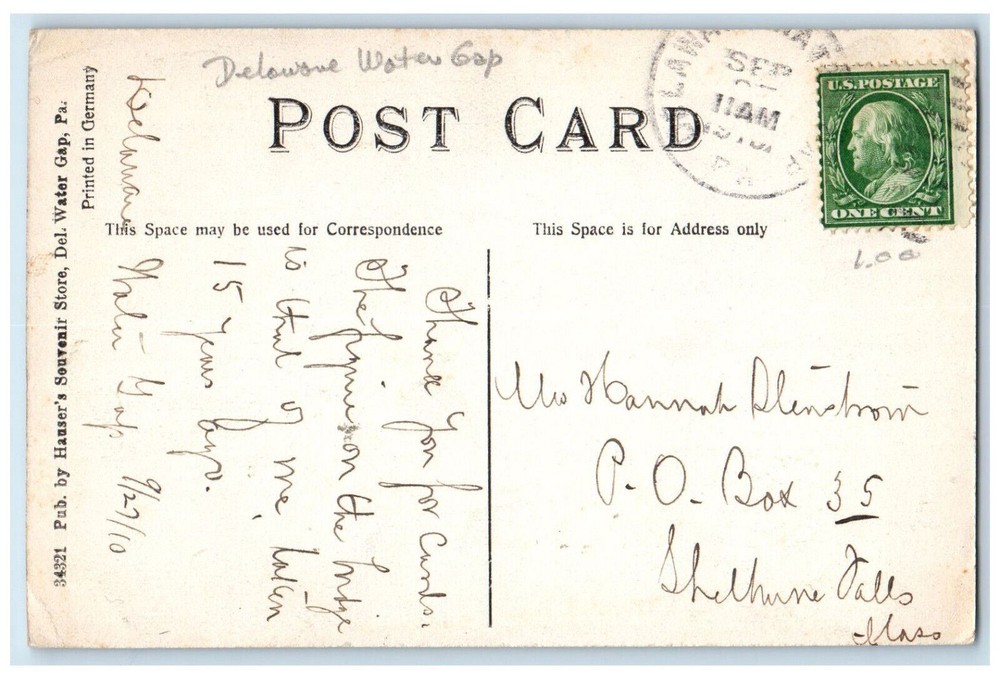 Delaware Water Gap
POST CARD
SEP
11 AM
PA
U.S. POSTAGE
ONE CENT
1.00
34321 Pub. by Hauser's Souvenir Store, Del. Water Gap, Pa.
Printed in Germany
This Space may be used for Correspondence
This Space is for Address only
Delaware
Water Gap 9/27/10
Thank you for Cards.
The figure on the bridge
is that of me taken
15 years ago.
Hannah
P. O. Box 35
Shelburne Falls
Mass